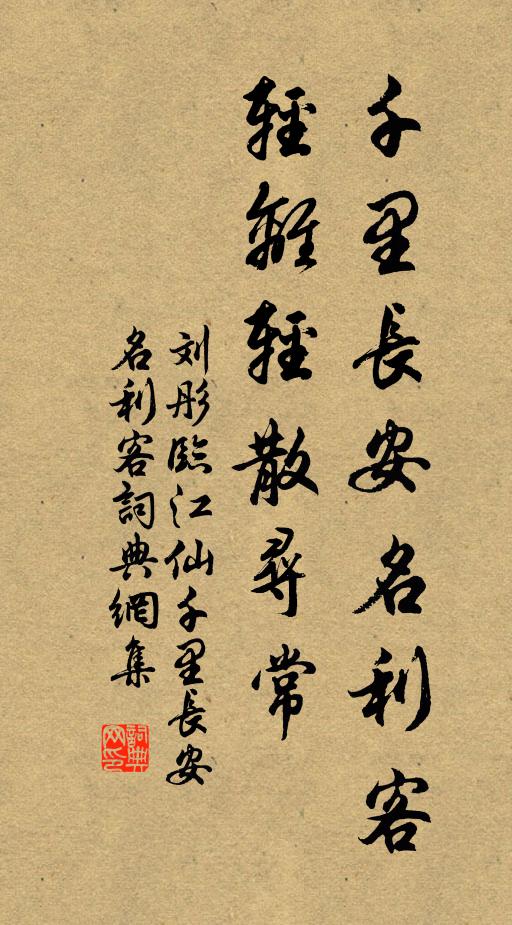 千里長安名利客
輕離輕散尋常
刘彤臨江仙千里長安
名利客詞典網集
詞典网印